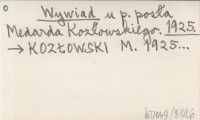 Wywiad u p. posła
Medarda Kozłowskiego. 1925.
→ KOZŁOWSKI M. 1925...